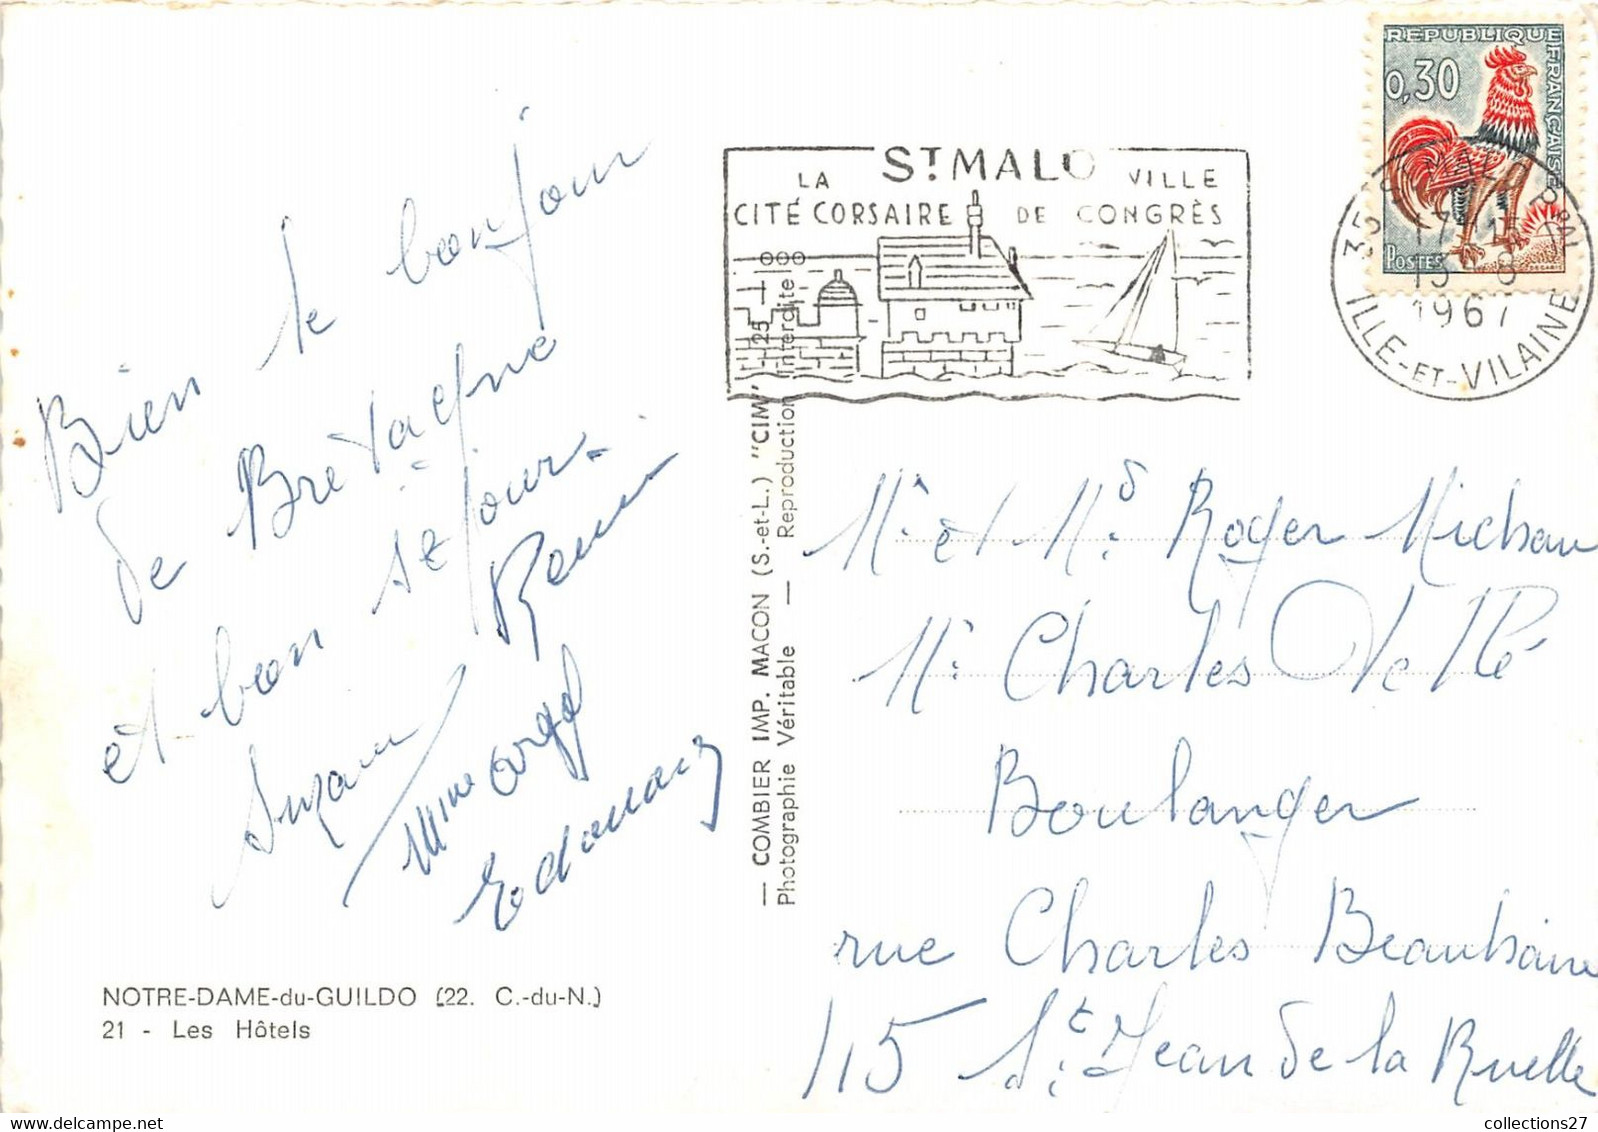 Bien le bonjour
de Bretagne
et bon séjour.
Suzanne
Mme
NOTRE-DAME-du-GUILDO (22. C.-du-N.)
21 - Les Hôtels
— COMBIER IMP. MACON (S.-et-L.) "CIM"
Photographie Véritable — Reproduction Interdite
25 — 000
ST MALO
LA VILLE
CITÉ CORSAIRE DE CONGRÈS
REPUBLIQUE FRANÇAISE
0,30
POSTES
1967
ILLE-ET-VILAINE
Mr et Md Roger Michau
Mr Charles
Boulanger
rue Charles
115 St Jean de la Ruelle
collections27